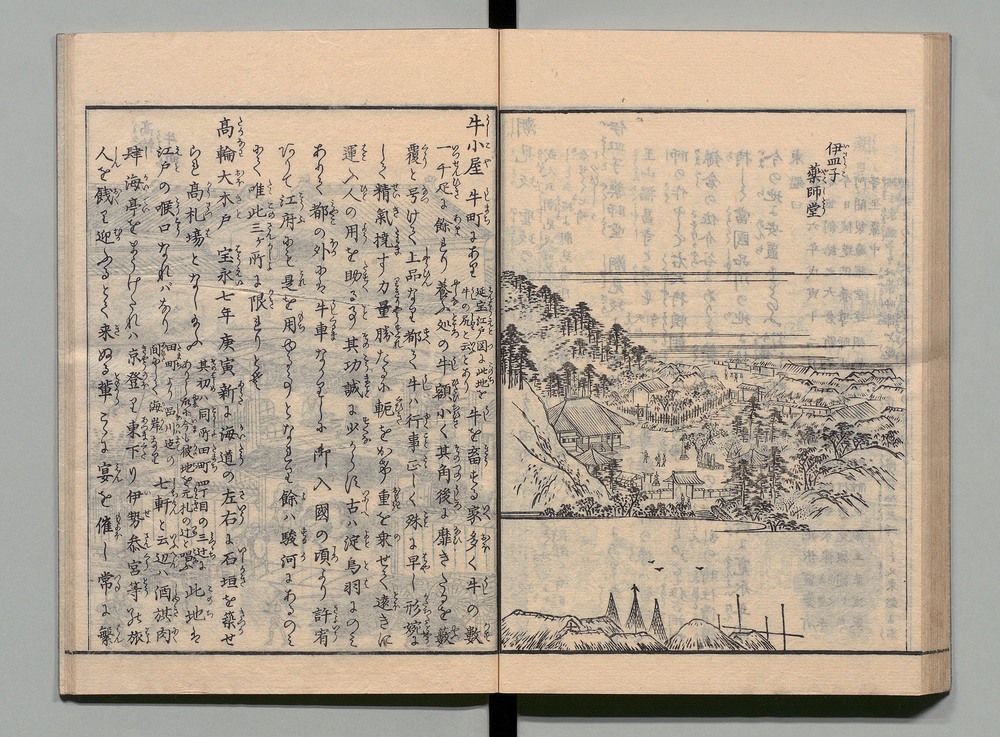 伊皿子
薬師堂
牛小屋 牛町にあり
延宝江戸図に此地を
牛の尻と云とあり
牛を畜する家多く牛の数
一千疋に餘れり養ふ処の牛額小く其角後に靡きたるを藪
覆と号けて上品なり都て牛ハ行事正しく殊に早し形婉に
して精氣撓す力量勝たるに軛をかけ重を乗せて遠きに
運ひ人の用を助る其功誠に少からす古ハ淀鳥羽にのミ
ありて都の外に牛車なかりしに御入國の頃より許宥
ありて江府にも是を用やるのとなれり餘ハ駿河にあるのミ
にて唯此三ケ所に限れりとそ
高輪大木戸 宝永七年庚寅新に海道の左右に石垣を築せ
られ高札場となしたまふ
其初同所田町四丁目の三辻に
ありし故に今も彼地を元札の辻と唱ふ
此地は
江戸の喉口なれハなり
田町より品川迄の
間にして海岸なり
七軒と云辺ハ酒旗肉
肆海亭をまうけたれハ京登り東下り伊勢参宮等の旅
人を餞り迎ふるとて来ぬる輩こゝに宴を催し常に繁